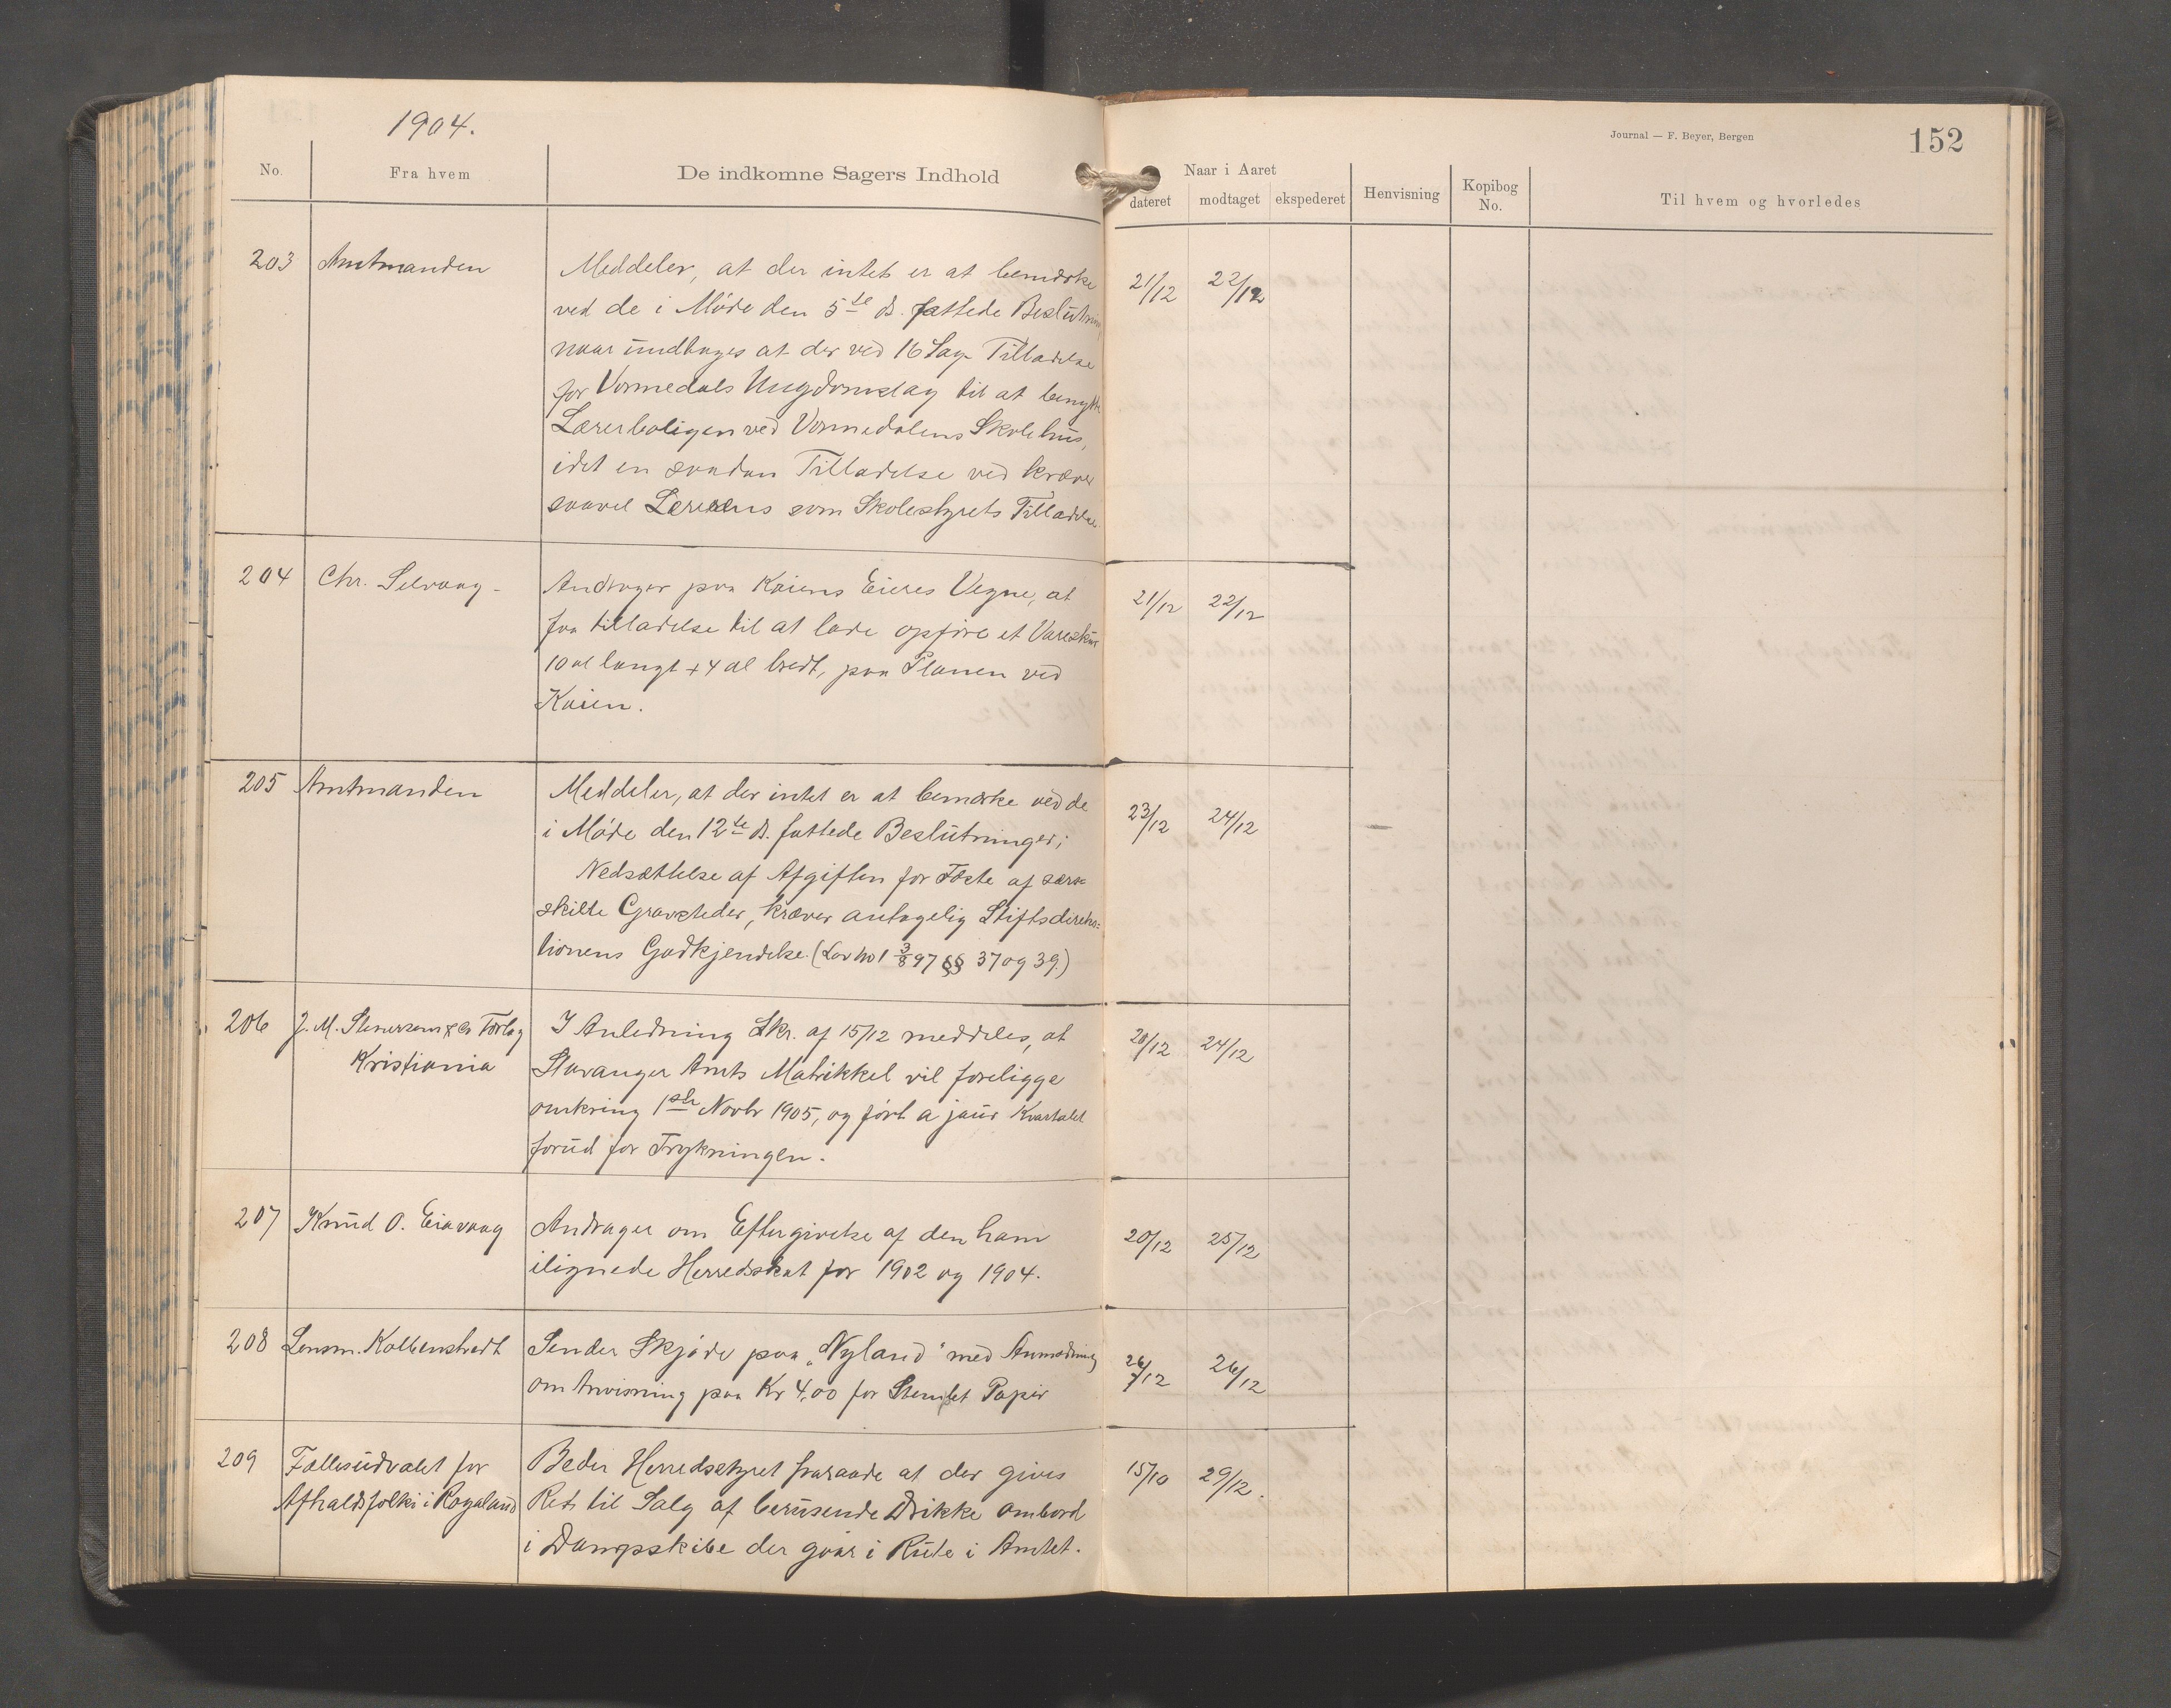 1904.
Journal — F. Beyer, Bergen
152
No.
Fra hvem
De indkomne Sagers Indhold
Naar i Aaret
dateret
modtaget
ekspederet
Henvisning
Kopibog No.
Til hvem og hvorledes
203 Amtmanden
Meddeler, at der intet er at bemærke 21/12 22/12
ved de i Møde den 5te ds. fattede Beslutning
naar undtages at der ved 16 Sag Tilladelse
for Vormedals Ungdomslag til at benytte
Lærerboligen ved Vormedalens Skolehus,
idet en saadan Tilladelse ved kræver
saavel Lærerens som Skolestyrets Tilladelse
204 Chr. Selvaag -
Andrager paa Kaiens Eieres Vegne, at 21/12 22/12
faa tilladelse til at lade opføre et Vareskur
10 al langt + 4 al bredt, paa Planen ved
Kaien.
205 Amtmanden
Meddeler, at der intet er at bemærke ved de 23/12 24/12
i Møde den 12te ds. fattede Beslutninger;
Nedsættelse af Afgiften for Fæste af sær-
skilte Gravsteder, kræver antagelig Stiftsdirek-
tionens Godkjendelse. (Lov No 1 3/8 97 §§ 37 og 39.)
206 J. M. Stenersen & Co Forlag
Kristiania
I Anledning Skr. af 15/12 meddeles, at 20/12 24/12
Stavanger Amts Matrikkel vil foreligge
omkring 1ste Novbr 1905, og ført a jour Kvartalet
forud for Trykningen.
207 Knud O. Eiavaag
Andrager om Eftergivelse af den ham 20/12 25/12
ilignede Herredsskat for 1902 og 1904.
208 Lensm. Kolbenstvedt
Sender Skjøde paa „Nyland" med Anmodning 26/12 26/12
om Anvisning paa Kr 4,00 for Stemplet Papir
209 Fællesudvalet for
Afhaldsfolki i Rogaland
Beder Herredsstyret fraraade at der gives 15/10 29/12.
Ret til Salg af berusende Drikke ombord
i Dampskibe der gaar i Rute i Amtet.